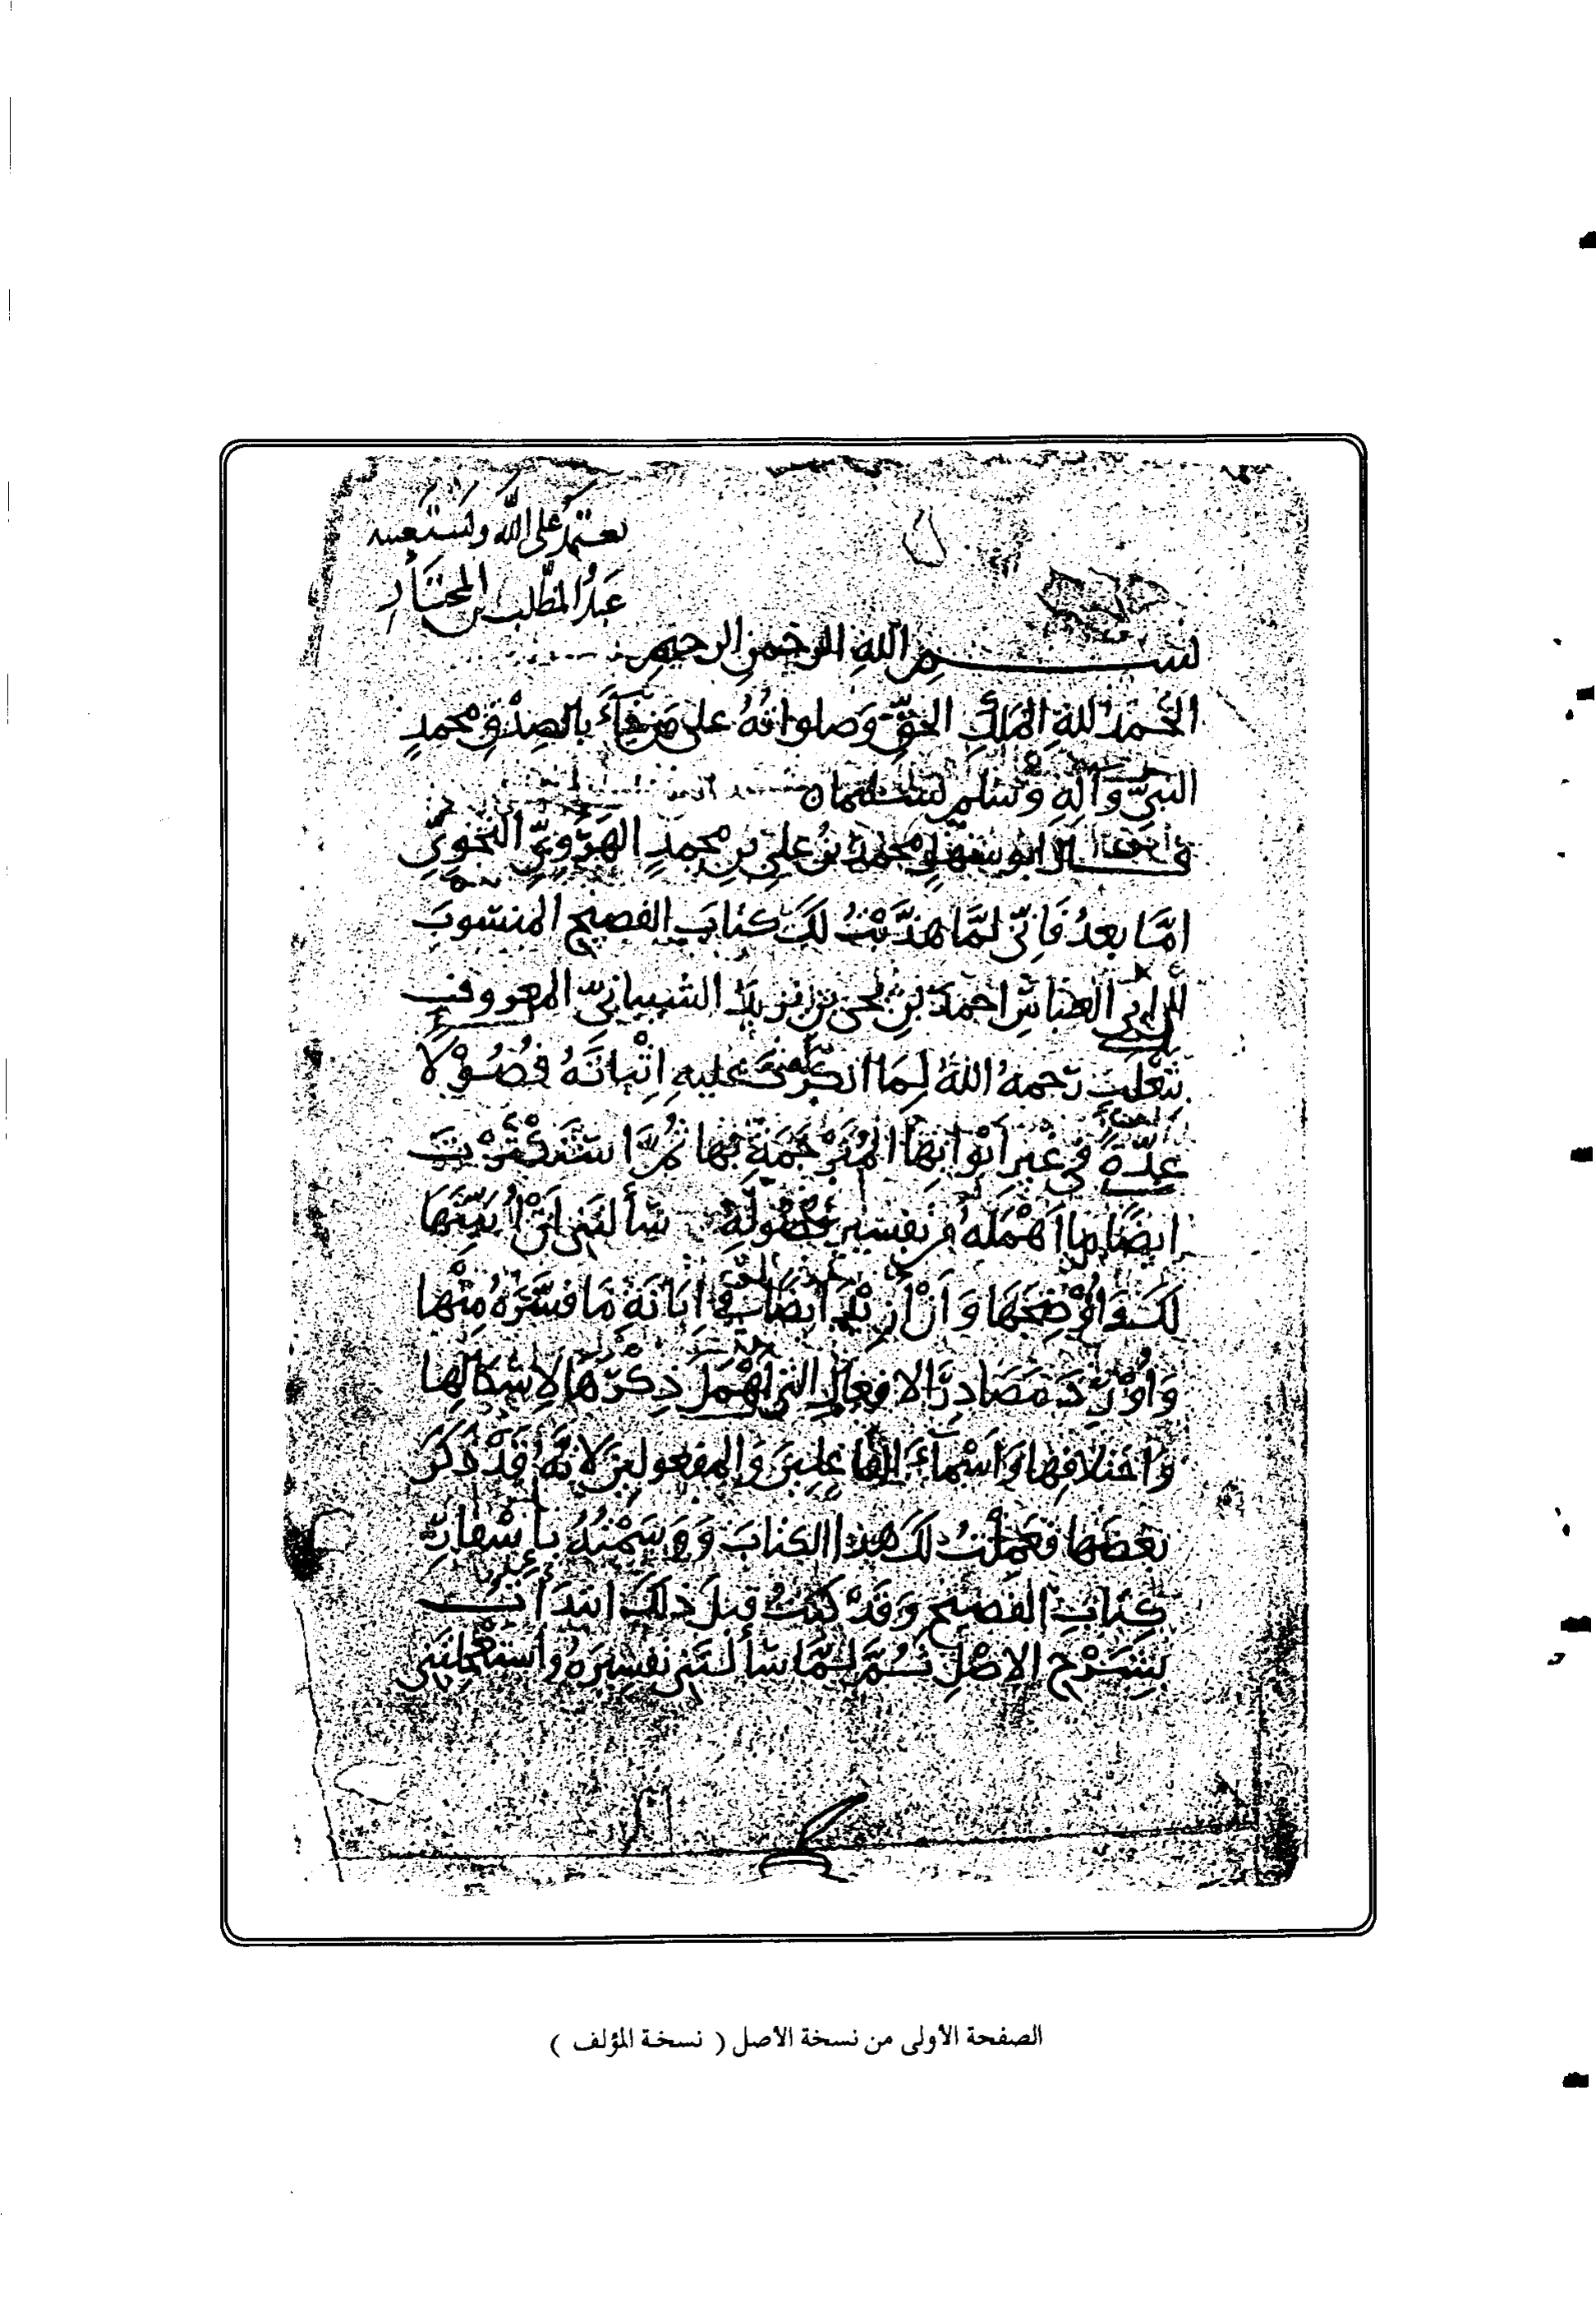 نعتمد على الله ونستعينه
عبد المطلب بن المختار
بسم الله الرحمن الرحيم
الحمد لله الملك الحق وصلواته على من جاء بالصدق محمد
النبي وآله وسلم تسليما
قال ابو سهل محمد بن علي بن محمد الهروي النحوي
امّا بعد فاني لمّا هذّبت لك كتاب الفصيح المنسوب
الى ابي العباس احمد بن يحيى بن زيد الشيباني المعروف
بثعلب رحمه الله لما انكر عليه اثباته فصولا
عدّة في غير أبوابها المترجمة بها ثمّ استدركت
ايضا ما اهمله من تفسير فصوله سألتني أن أبيّنها
لك وأوضحها وأن أزيد أيضا في ابانة ما فسّره منها
وأورد مصادر الافعال التي أهمل ذكرها لإشكالها
واختلافها وأسماء الفاعلين والمفعولين لانّه قد ذكر
بعضها فعملت لك هذا الكتاب ووسمته بإسفار
كتاب الفصيح وقد كنت قبل ذلك ابتدأت
بشرح الاصل ثمّ لمّا سألتني تفسيره واستعجلتني
الصفحة الأولى من نسخة الأصل ( نسخة المؤلف )